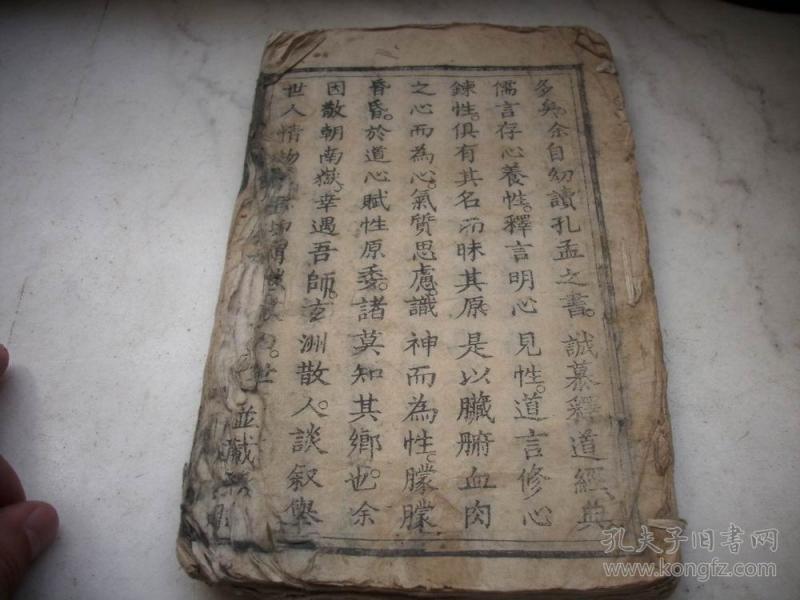 多矣。余自幼讀孔孟之書。誠慕釋道經典
儒言存心養性。釋言明心見性。道言修心
鍊性。俱有其名而昧其原是以臟腑血肉
之心而為心。氣質思慮識神而為性。朦朦
昏昏。於道心賦性原委。諸莫知其鄉也。余
因散朝南嶽。幸遇吾師。玄洲散人。談叙舉
世人情物
世
並藏
孔夫子旧书网
www.kongfz.com